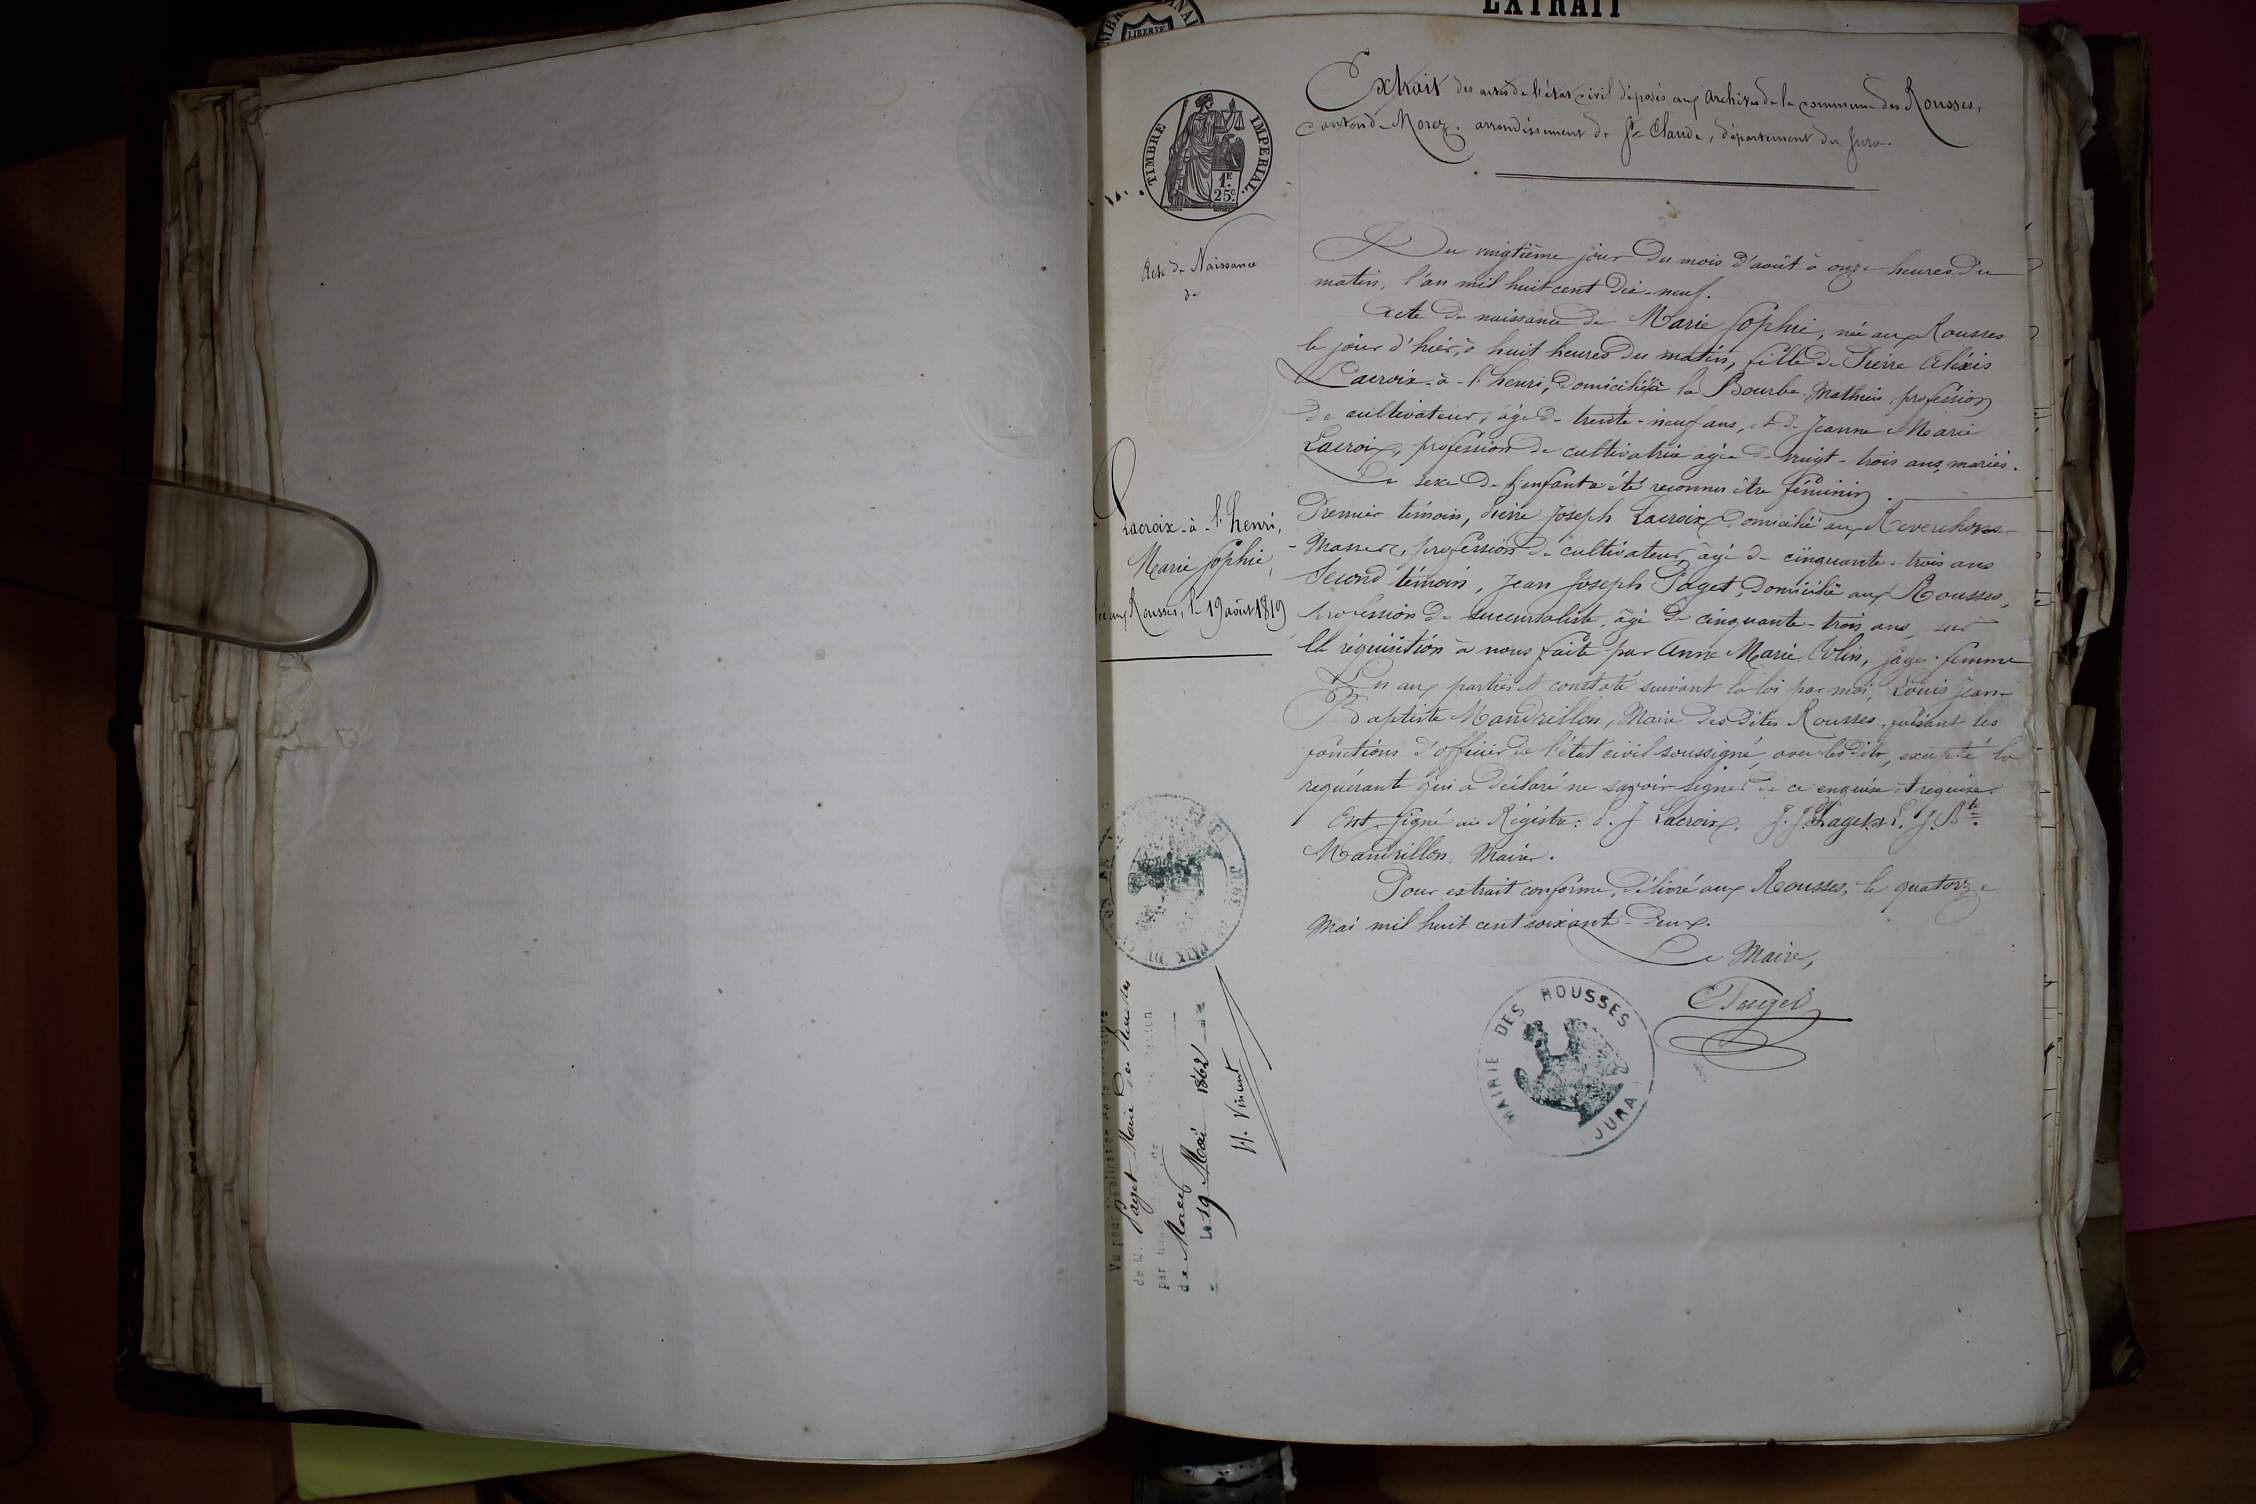 EXTRAIT
LIBERTÉ
TIMBRE IMPERIAL.
1F
25c
Extrait des actes de l'état civil déposés aux archives de la commune des Rousses,
canton de Morez, arrondissement de St Claude, département du Jura.
Acte de Naissance
de
Lacroix-à-l'henri,
Marie Sophie,
née aux Rousses, le 19 août 1819
Du vingtième jour du mois d'août à onze heures du
matin, l'an mil huit cent dix-neuf.
Acte de naissance de Marie Sophie, née aux Rousses
le jour d'hier, à huit heures du matin, fille de Pierre Aléxis
Lacroix-à-l'henri, domicilié à la Bourbe-Mathieu, profession
de cultivateur, âgé de trente-neuf ans, et de Jeanne Marie
Lacroix, profession de cultivatrice âgée de vingt-trois ans, mariés.
Le sexe de l'enfant a été reconnu être féminin.
Premier témoin, Pierre Joseph Lacroix domicilié aux Reverchons
profession de cultivateur, âgé de cinquante-trois ans
Second témoin, Jean Joseph Paget, domicilié aux Rousses,
profession de succursaliste, âgé de cinquante-trois ans, sur
la réquisition à nous faite par Anne Marie Colin, sage-femme
Lu aux parties et constaté suivant la loi par moi, Louis Jean-
Baptiste Mandrillon, Maire des dites Rousses, faisant les
fonctions d'officier de l'état civil soussigné, avec les dits, excepté la
requérante qui a déclaré ne savoir signer de ce enquise et requise.
Ont signé au Régistre: P. J Lacroix, J. J. Paget et L. J. Bte
Mandrillon, Maire.
Pour extrait conforme, délivré aux Rousses, le quatorze
Mai mil huit cent soixante-deux.
Le Maire,
Paget
MAIRIE DES ROUSSES
JURA
PAIX DU
Vu pour
de M. Paget Maire des Rousses
par
de Morez
Le 19 Mai 1862
H. Vincent